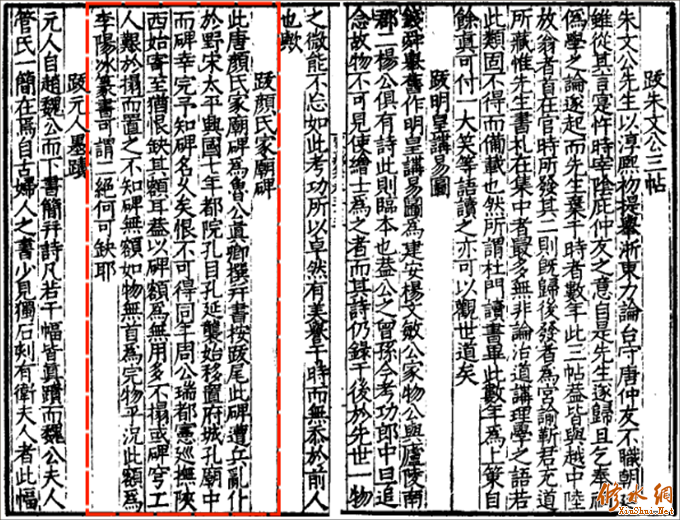 跋朱文公三帖
朱文公先生以淳熙初提舉浙東力論台守唐仲友不職朝廷
雖從其言寔忤時宰陰庇仲友之意自是先生遂歸且乞奉祠
僞學之論遂起而先生棄于時者數年此三帖蓋皆與越中陸
放翁者首在官時所發其二則既歸後發者爲宮諭靳君充道
所藏惟先生書札在集中者最多無非論治道講理學之語若
此類固不得而備載也然所謂杜門讀書畢此數年爲上策自
餘真可付一大笑等語讀之亦可以觀世道矣
跋明皇講易圖
錢舜舉舊作明皇講易圖爲建安楊文敏公家物公與廬陵南
郡二楊公俱有詩此則臨本也蓋公之曾孫今考功郎中旦追
念故物不可見使繪士爲之者而其詩仍録于後於先世一物
之微能不忘如此考功所以卓然有美譽于時而無忝於前人
也歟
跋顏氏家廟碑
此唐顏氏家廟碑爲魯公真卿撰并書按跋尾此碑遭兵亂仆
於野宋太平興國七年都院孔目孔延襲始移置府城孔廟中
而碑幸完予知碑名久矣恨不可得同年周公瑞都憲巡撫陝
西始寄至猶恨缺其額耳蓋以碑額爲無用多不搨或碑穹工
人艱於搨而置之不知碑無額如物無首爲完物乎況此額爲
李陽冰篆書可謂二絕何可缺耶
跋元人墨蹟
元人自趙魏公而下書簡并詩凡若干幅皆真蹟而魏公夫人
管氏一簡在焉自古婦人之書少見獨石刻有衛夫人者此幅
修水網
XiuShui.Net